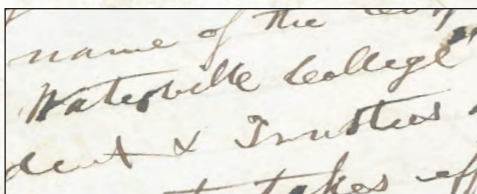 name of the
Waterville College"
dent & Trustees
takes